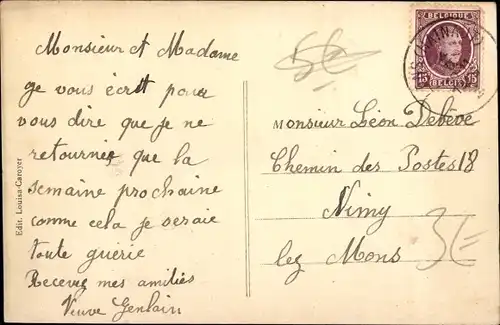 Monsieur et Madame
ge vous écrit pour
vous dire que je ne
retournie que la
semaine prochaine
comme cela je seraie
toute guérie
Recevez mes amitiés
Veuve Genlain
Edit. Louisa-Caroyer
5€
BELGIQUE
15 BELGIË 15
DINANT
Monsieur Léon Debève
Chemin des Postes 18
Nimy
lez Mons
3€